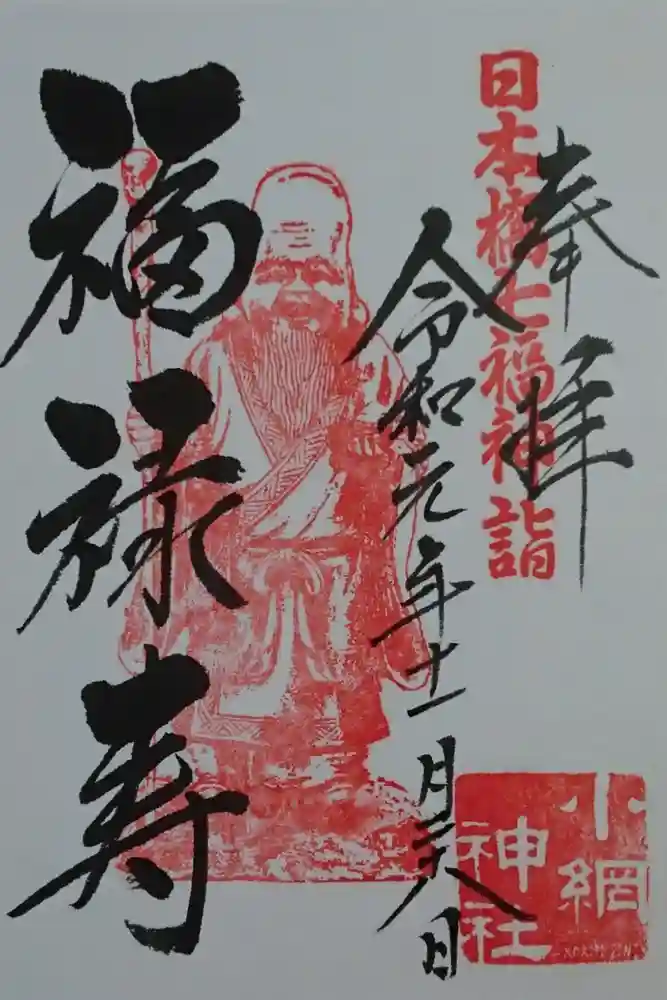 奉拝
日本橋七福神詣
令和元年十一月二十八日
福禄寿
小網
神社